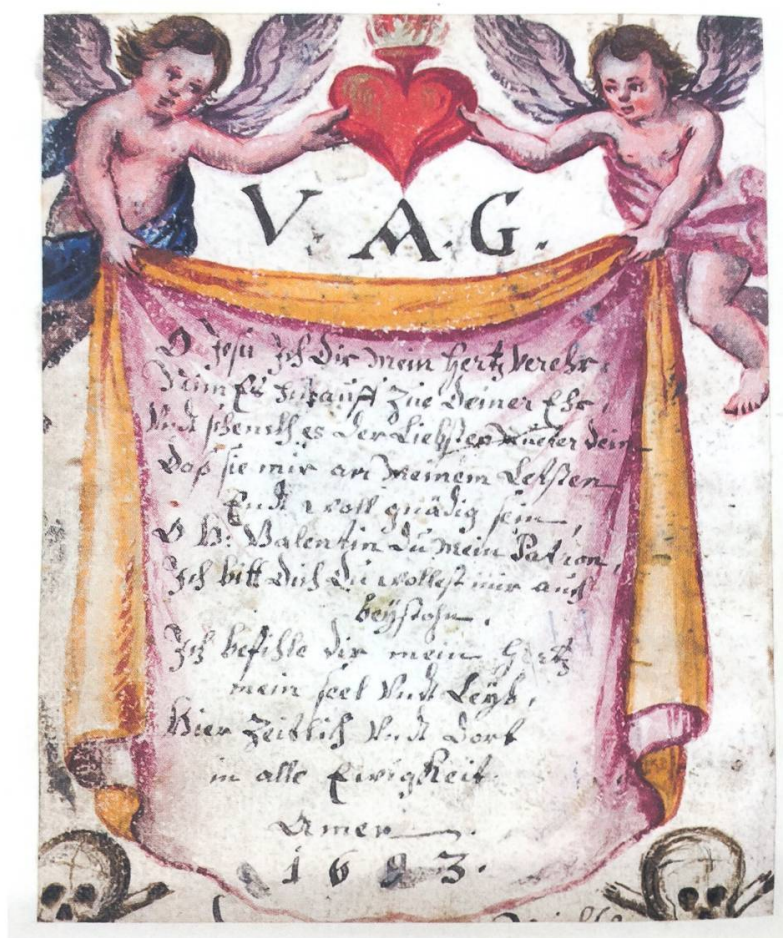 V. A. G.
O Jesu Ich dir mein Hertz verehr,
Nimb Es Ihn auff zue deiner Ehr,
Undt schenckh es der Liebsten Mueter dein
Das sie mir an meinem Lehsten
Endt woll gnädig sein,
O H: Valentin du mein Patron,
Ich bitt dich du wollest mir auch
beystohn.
Ich befihle dir mein Hertz
mein seel Undt Leyb,
Hier Zeitlich Undt dort
in alle Ewigkeit.
Amen.
1683.